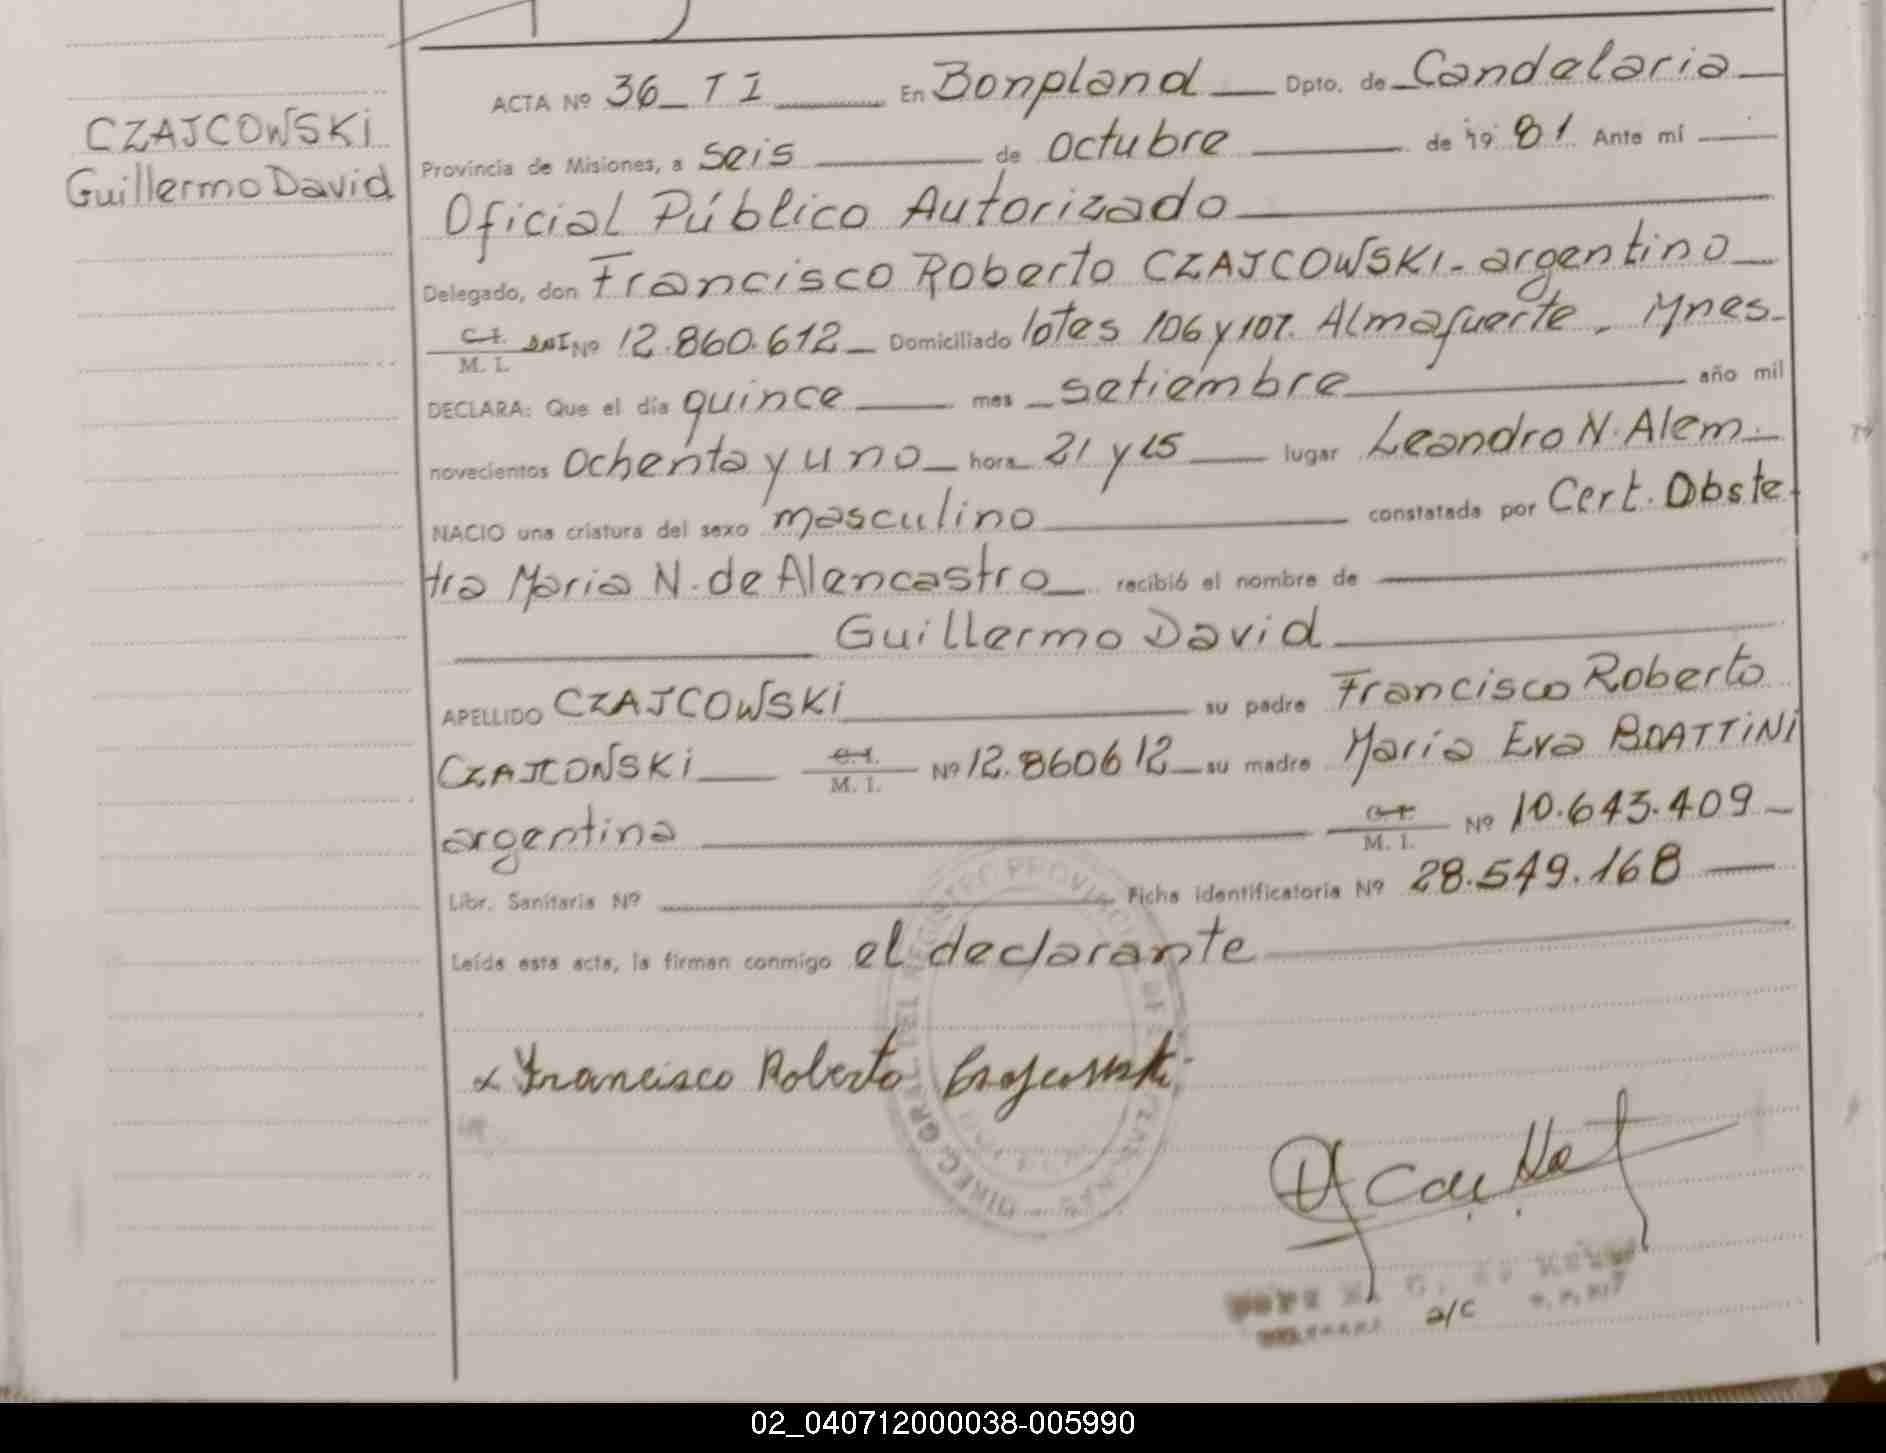 CZAJCOWSKI
Guillermo David
ACTA Nº 36_ T I En Bonpland Dpto. de Candelaria
Provincia de Misiones, a seis de octubre de 19 81. Ante mí
Oficial Público Autorizado
Delegado, don Francisco Roberto CZAJCOWSKI. argentino
C.I. DNI Nº 12.860.612 Domiciliado lotes 106 y 107. Almafuerte. Mnes.
M. I.
DECLARA: Que el día quince mes setiembre año mil
novecientos ochenta y uno hora 21 y 15 lugar Leandro N. Alem.
NACIO una criatura del sexo masculino constatada por Cert. Obste
tra Maria N. de Alencastro recibió el nombre de
Guillermo David
APELLIDO CZAJCOWSKI su padre Francisco Roberto
CZAJCOWSKI C.I. M. I. Nº 12.860612 su madre Maria Eva BOATTINI
argentina C.I. M. I. Nº 10.643.409
Libr. Sanitaria Nº Ficha identificatoria Nº 28.549.168
Leída esta acta, la firman conmigo el declarante
Francisco Roberto Czajcowski
DIREC. GRAL. DEL REGISTRO PROVINCIAL DE
a/c
02_040712000038-005990